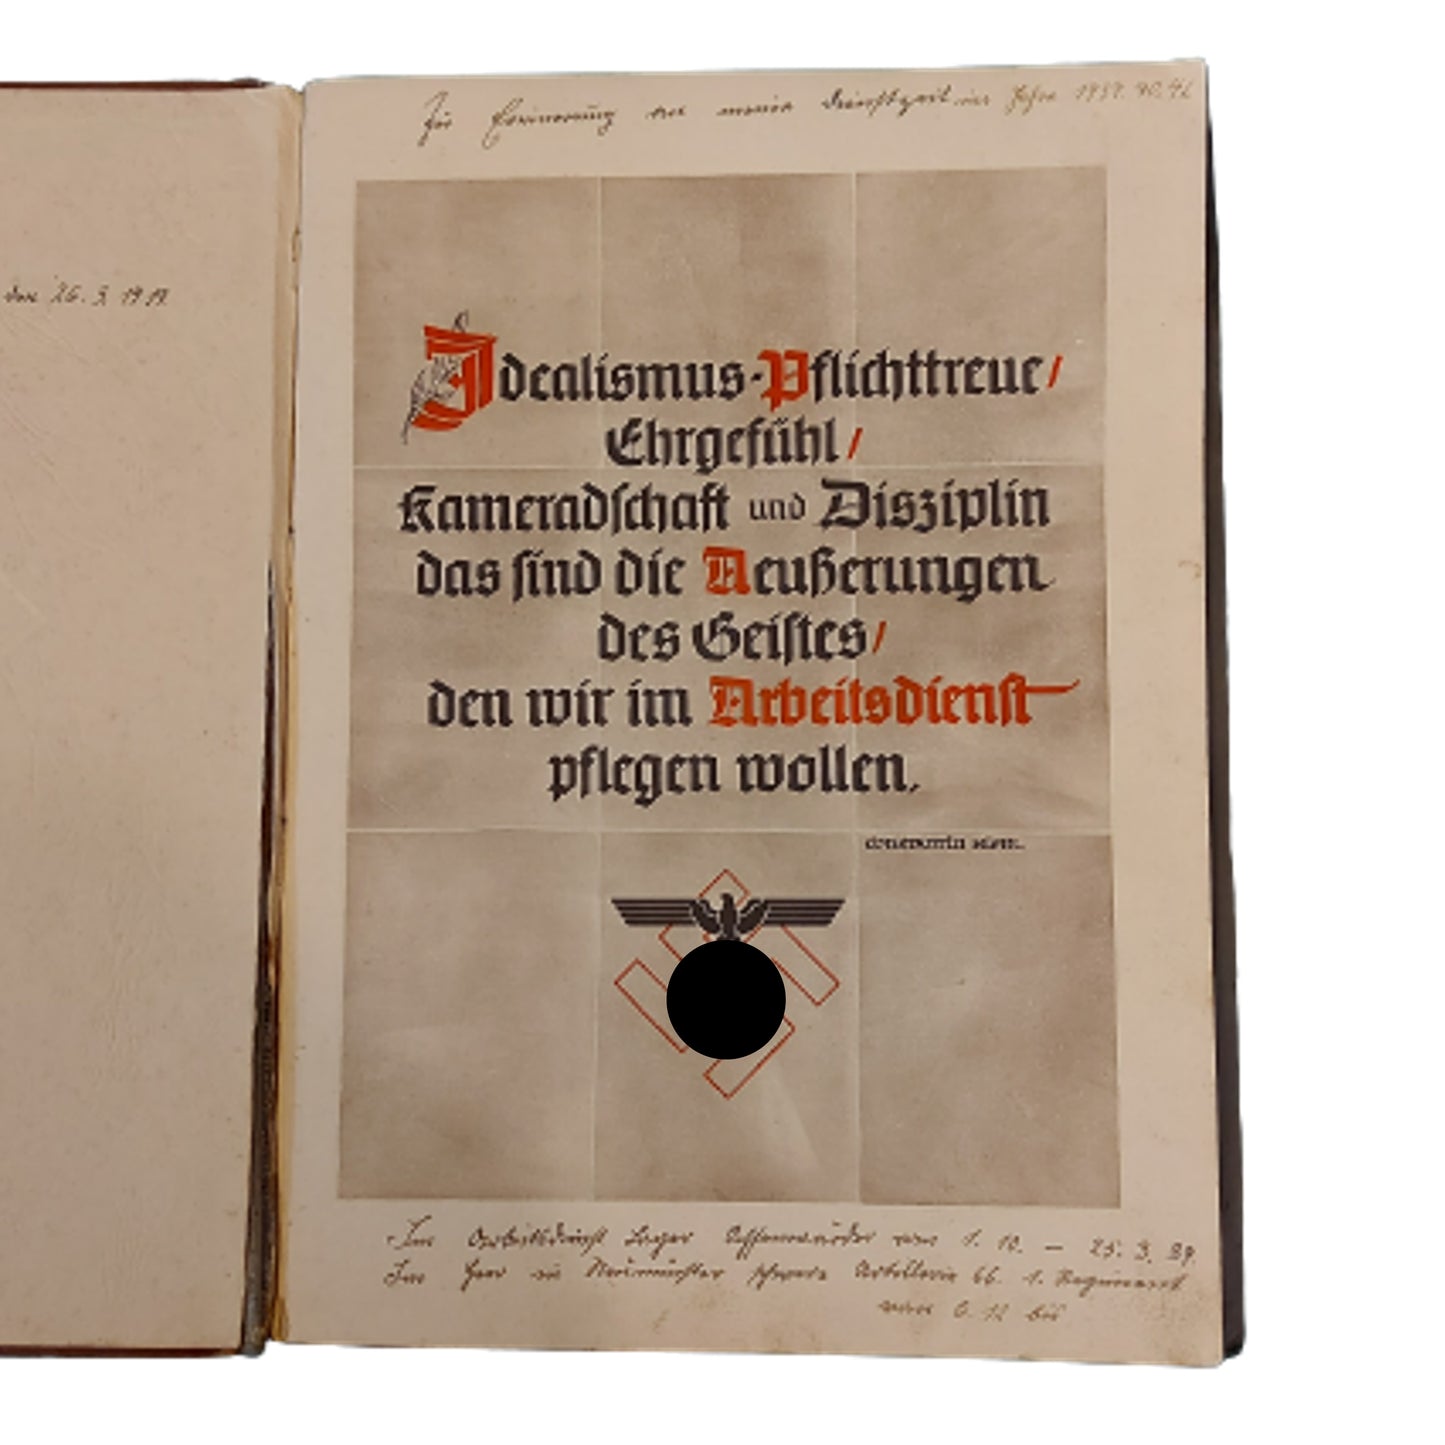 den 26. 3. 19
Zur Erinnerung an meine Dienstzeit im Jahre 1939. 40. 41
Idealismus-Pflichttreue/
Ehrgefühl/
Kameradſchaft und Disziplin
das ſind die Aeußerungen
des Geiſtes/
den wir im Arbeitsdienſt
pflegen wollen.
Im Arbeitsdienst Lager von 1. 10. – 25. 3. 39.
Im Heer in Neumünster schwere Artillerie 66. 1. Regiment
von 6. 12 bis